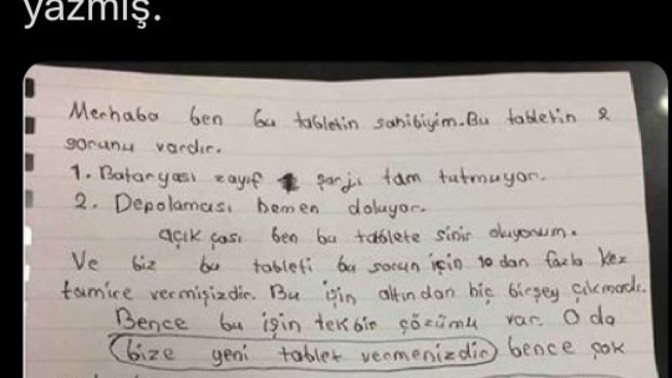 yazmış.
Merhaba ben bu tabletin sahibiyim. Bu tabletin 2
sorunu vardır.
1. Bataryası zayıf şarjı tam tutmuyor.
2. Depolaması hemen doluyor.
açık çası ben bu tablete sinir oluyorum.
Ve biz bu tableti bu sorun için 10 dan fazla kez
tamire vermişizdir. Bu işin altından hiç birşey çıkmadı.
Bence bu işin tek bir çözümü var. O da
bize yeni tablet vermenizdir bence çok